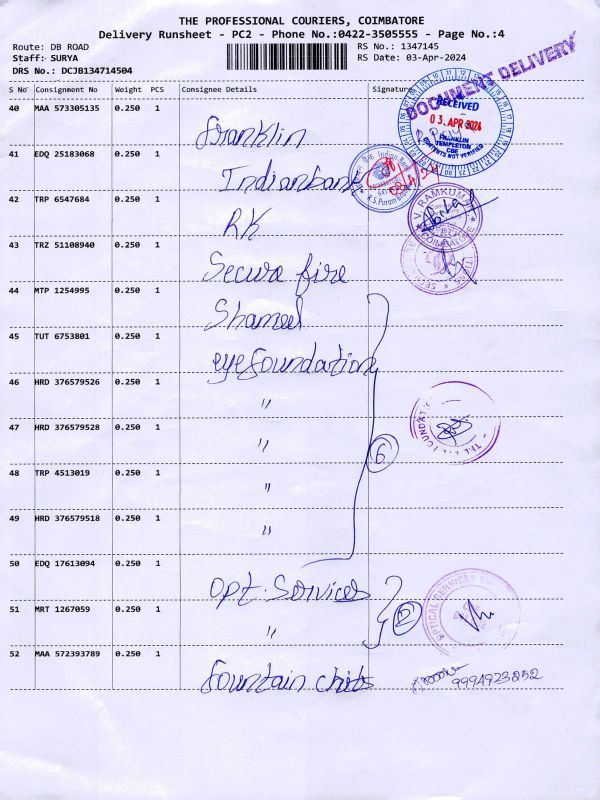 THE PROFESSIONAL COURIERS, COIMBATORE
Delivery Runsheet - PC2 - Phone No.:0422-3505555 - Page No.:4
Route: DB ROAD
Staff: SURYA
DRS No.: DCJB134714504
RS No.: 1347145
RS Date: 03-Apr-2024
DOCUMENT DELIVERY
S No Consignment No Weight PCS Consignee Details Signature
40 MAA 573305135 0.250 1 Franklin
RECEIVED
03. APR 2024
FRANKLIN
TEMPLETON
CBE
CONTENTS NOT VERIFIED
41 EDQ 25183068 0.250 1 Indianbank
Indian Bank
R.S. Puram
42 TRP 6547684 0.250 1 RK
V. RAMKUMAR
COIMBATORE
43 TRZ 51108940 0.250 1 Secura fire
44 MTP 1254995 0.250 1 Shameel
45 TUT 6753801 0.250 1 eyefoundation
46 HRD 376579526 0.250 1 "
FOUNDATION
47 HRD 376579528 0.250 1 "
6
48 TRP 4513019 0.250 1 "
49 HRD 376579518 0.250 1 "
50 EDQ 17613094 0.250 1 Opt. Services
OPTICAL SERVICES
51 MRT 1267059 0.250 1 "
2
52 MAA 572393789 0.250 1 fountain chits
9994923252